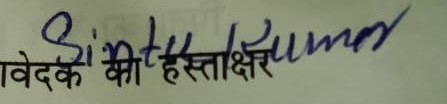 Sintu Kumar
आवेदक का हस्ताक्षर